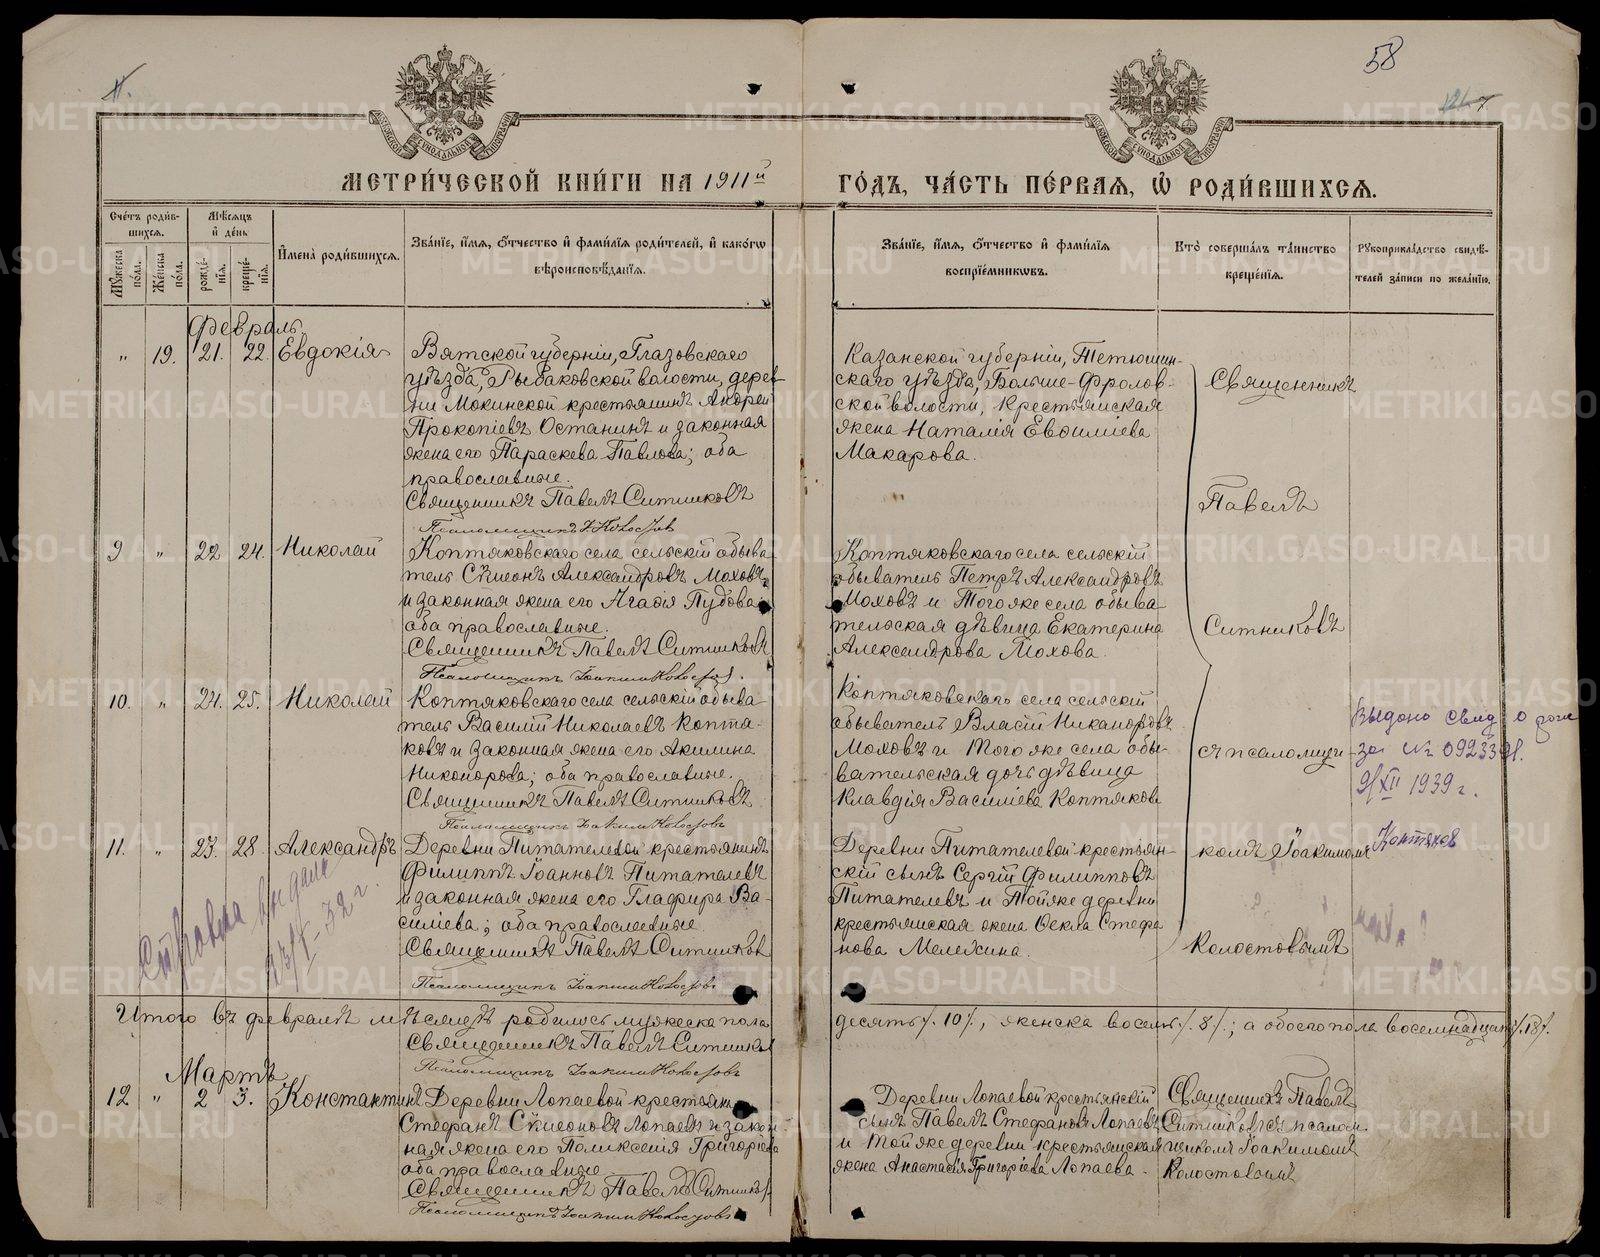 58
МЕТРИ́ЧЕСКОЙ КНИ́ГИ НА 1911й ГО́ДЪ, ЧА́СТЬ ПЕ́РВАЯ, Ѡ РОДИ́ВШИХСЯ.
Сче́тъ роди́в-
шихся.
Му́жеска
по́ла.
Же́нска
по́ла.
Мѣ́сяцъ
и де́нь
рожде́-
нія.
креще́-
нія.
Имена̀ роди́вшихся.
Зва́ніе, и́мя, о́тчество и фами́лія роди́телей, и како́гѡ
вѣроисповѣ́данія.
Зва́ніе, и́мя, о́тчество и фами́лія
воспріе́мниковъ.
Кто̀ соверша́лъ та́инство
креще́нія.
Рукоприкла́дство свидѣ́-
телей за́писи по жела́нію.
Февраль
" 19. 21. 22. Евдокія
Вятской губерніи, Глазовскаго
уѣзда, Рыбаковской волости, дерев
ни Мокинской крестьянинъ Андрей
Прокопіевъ Останинъ и законная
жена его Параскева Павлова; оба
православные.
Священникъ Павелъ Ситниковъ
Псаломщикъ
Казанской губерніи, Тетюшин-
скаго уѣзда, Больше-Фролов-
ской волости, крестьянская
жена Наталія Евѳиміева
Макарова.
Священникъ
Павелъ
Ситниковъ
съ псаломщи-
комъ Іоакимомъ
Колостовымъ
9 " 22 24. Николай
Коптяковскаго села сельскій обыва
тель Сѷмеонъ Александровъ Моховъ
и законная жена его Агаѳія Пудова;
оба православные.
Священникъ Павелъ Ситниковъ
Псаломщикъ Іоакимъ Колостовъ.
Коптяковскаго села сельскій
обыватель Петръ Александровъ
Моховъ и того же села обыва
тельская дѣвица Екатерина
Александрова Мохова.
10. " 24. 25. Николай
Коптяковскаго села сельскій обыва
тель Василій Николаевъ Коптя-
ковъ и законная жена его Акилина
Никонорова; оба православные.
Священникъ Павелъ Ситниковъ
Псаломщикъ Іоакимъ Колостовъ
Коптяковскаго села сельскій
обыватель Власій Никаноровъ
Моховъ и того же села обы-
вательская дочь дѣвица
Клавдія Василіева Коптякова
Выдано свид о рож
за № 0923391.
9/XII 1939 г.
Коптяков
11. " 23. 28. Александръ
Деревни Питателевой крестьянинъ
Филиппъ Іоанновъ Питателевъ
и законная жена его Глафира Ва-
силіева; оба православные
Священникъ Павелъ Ситниковъ
Псаломщикъ Іоакимъ Колостовъ
Деревни Питателевой крестьян-
скій сынъ Сергій Филипповъ
Питателевъ и той же деревни
крестьянская жена Ѳекла Стефа
нова Мелехина.
выдана
23/I-32 г.
Итого въ февралѣ мѣсяцѣ родилось мужеска пола десять /. 10 /., женска восемь /. 8 /.; а обоего пола восемнадцать /. 18 /.
Священникъ Павелъ Ситниковъ
Псаломщикъ Іоакимъ Колостовъ
Мартъ
12 " 2 3. Константинъ
Деревни Лопаевой крестьянинъ
Стефанъ Сѷмеоновъ Лопаевъ и закон
ная жена его Поликсенія Григоріева
оба православные
Священникъ Павелъ Ситниковъ
Псаломщикъ Іоакимъ Колостовъ
Деревни Лопаевой крестьянскій
сынъ Павелъ Стефановъ Лопаевъ
и той же деревни крестьянская
жена Анастасія Григоріева Лопаева.
Священникъ Павелъ
Ситниковъ съ псалом
щикомъ Іоакимомъ
Колостовымъ